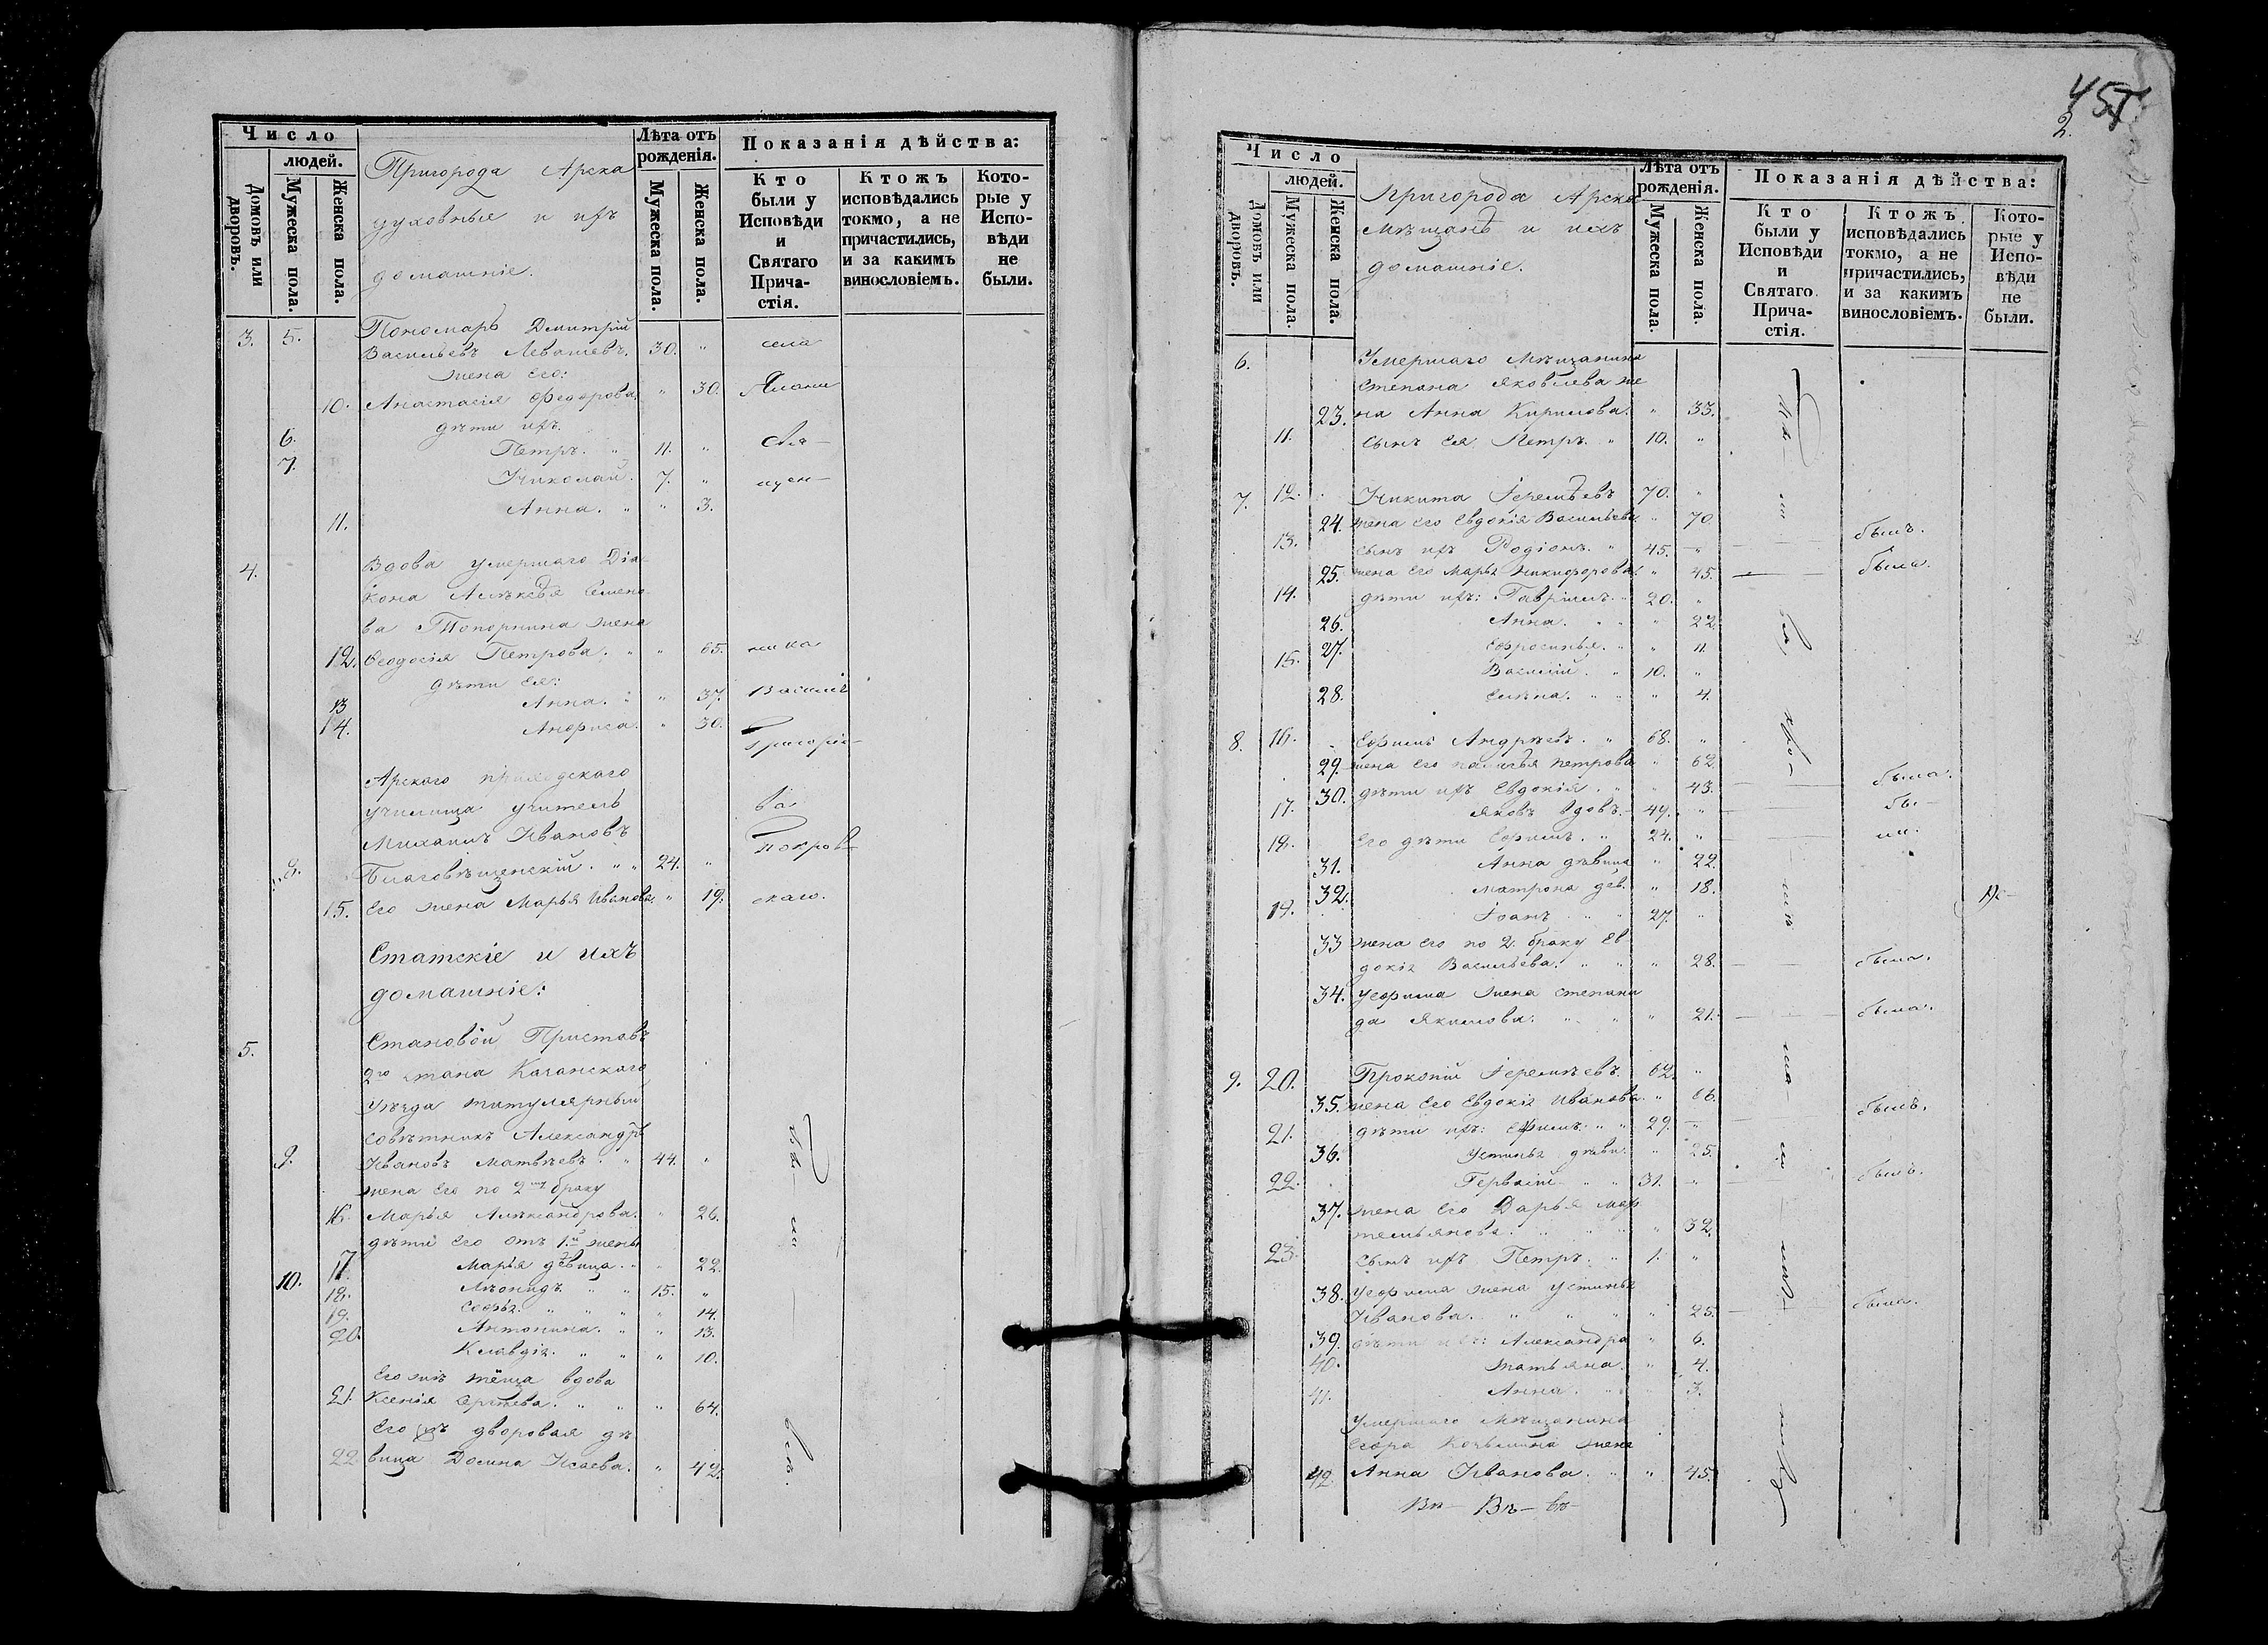 Число
людей.
Домовъ или дворовъ.
Мужеска пола.
Женска пола.
Пригорода Арска
духовныя и ихъ
домашніе.
Лѣта отъ рожденія.
Мужеска пола.
Женска пола.
Показанія дѣйства:
Кто были у Исповѣди и Святаго Прича-стія.
Ктожъ исповѣдались токмо, а не причастились, и за какимъ винословіемъ.
Кото-рые у Испо-вѣди не были.
3. 5. Пономарь Димитрій
Васильевъ Левашевъ. 30. " села
жена его:
10. Анастасія Федорова " 30.
дѣти ихъ.
6. Петръ. " 11. " свя-
7. Николай. 7. " щен-
11. Анна. " " 3.
4. Вдова умершаго Діа-
кона Алексѣя Семено-
ва Топорнина жена
12. Феодосія Петрова. " " 65. ника
дѣти ея:
13 Анна. " 37. Василія
14. Анфиса. " 30. Григорье-
Арскаго приходскаго
училища учитель ва
Михаилъ Ивановъ Покров-
8. Благовѣщенскій. " " 24. "
15. Его жена Марья Иванова " 19. скаго.
Статскіе и ихъ
домашніе:
5. Становой Приставъ
2го стана Казанскаго
уѣзда титулярный
совѣтникъ Александръ
9. Ивановъ Матвѣевъ. " 44. "
жена его по 2му браку
16. Марья Александрова. " 26.
дѣти его отъ 1й жены
17. Марья дѣвица. " " 22.
10. Леонидъ " " 15. "
18. Софья. " " " " 14.
19. Антонина. " " 13.
20. Клавдія. " " " 10.
Его же тёща вдова
21. Ксенія Сергѣева. " " " 64.
Его же дворовая дѣ-
22 вица Домна Исаева. " 42.
457
2.
Число
людей.
Домовъ или дворовъ.
Мужеска пола.
Женска пола.
Пригорода Арска
Мѣщанъ и ихъ
домашніе.
Лѣта отъ рожденія.
Мужеска пола.
Женска пола.
Показанія дѣйства:
Кто были у Исповѣди и Святаго Прича-стія.
Ктожъ исповѣдались токмо, а не причастились, и за какимъ винословіемъ.
Кото-рые у Испо-вѣди не были.
6. Умершаго мѣщанина
Степана Яковлева же
23. на Анна Кирилова. " 33.
11. сынъ ея Петръ. " 10. "
7. 12. Никита Іеремѣевъ 70. "
24. жена его Евдокія Васильева " 70.
13. сынъ ихъ Родіонъ. " 45. " былъ.
25. жена его Марья Никифорова " 45. была.
14. дѣти ихъ: Гавріилъ. " 20. "
26. Анна. " " " 22.
27. Ефросинья. " " 11.
15. Василій. " 10. "
28. Елена. " " " 4.
8. 16. Ефимъ Андреевъ. " 68. "
29. жена его Наталья Петрова " 62.
30. дѣти ихъ Евдокія. " " 43. была.
17. Яковъ вдовъ. 49. " бы-
18. его дѣти Ефимъ. " 24. " ли.
31. Анна дѣвица " 22.
32. Матрона дѣв. " 18.
19. Іоанъ " " 27. "
33 жена его по 2. браку Ев
докія Васильева. " " " 28. была.
34. у Ефима жена Степани
да Якимова. " " " 21. была.
9. 20. Прокопій Іеремѣевъ. 62. "
35. жена его Евдокія Иванова. " 66.
21. дѣти ихъ: Ефимъ. " " 29. " былъ.
36. Устинья дѣви. " 25.
22. Гервасій " " 31. " былъ.
37. жена его Дарья Мар
темьянова. " " " 32.
23. сынъ ихъ Петръ. " 1. "
38. у Ефима жена Устинья
Иванова. " " " " 25. была.
39. дѣти ихъ: Александра " 6.
40. Татьяна. " 4.
41. Анна. " " 3.
Умершаго Мѣщанина
Егора жена
42. Анна Иванова. " " 45.